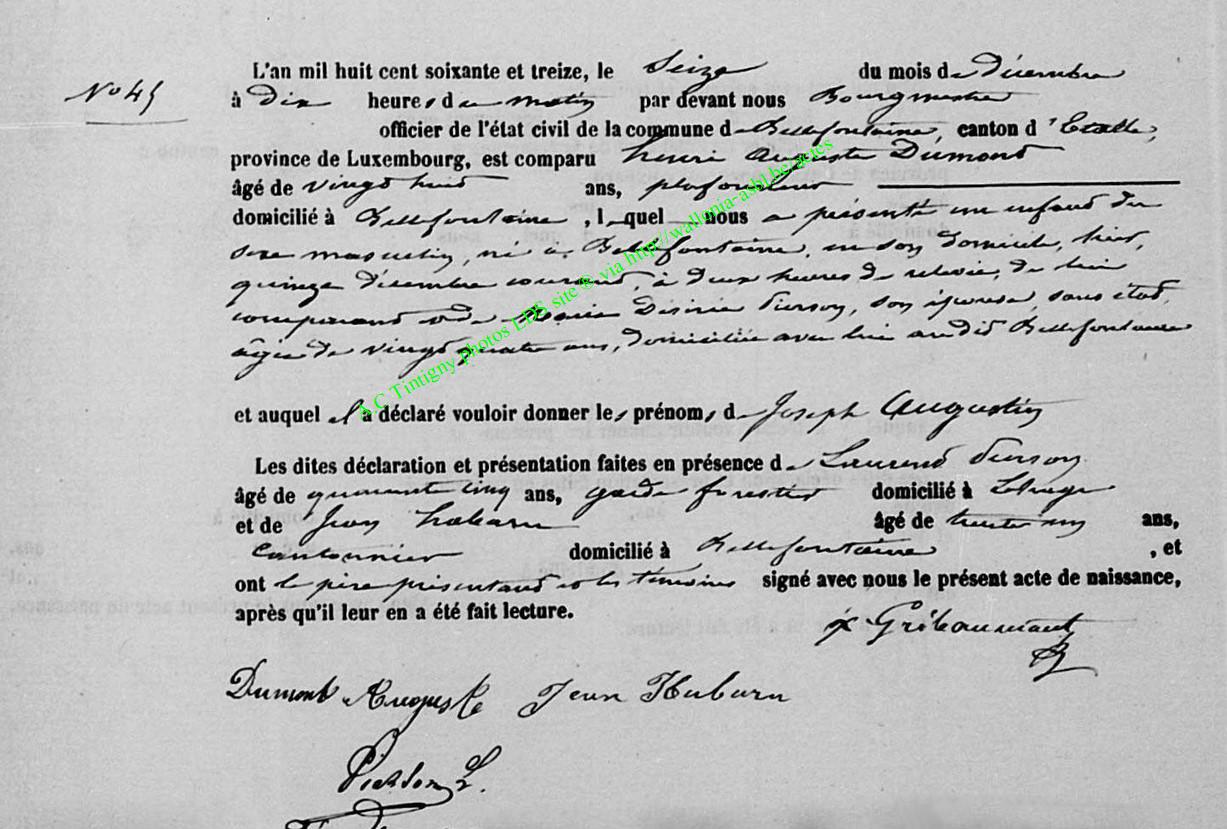 L'an mil huit cent soixante et treize, le Seize du mois de Décembre
N° 45
à Dix heures du matin par devant nous Bourgmestre
officier de l'état civil de la commune de Bellefontaine, canton d'Etalle,
province de Luxembourg, est comparu henri Auguste Dumont
âgé de vingt huit ans, plafonneur
domicilié à Bellefontaine, lequel nous a présenté un enfant du
sexe masculin, né à Bellefontaine, en son domicile, hier,
quinze décembre courant, à deux heures de relevée, de lui
comparant et de Marie Désirée Pierson, son épouse, sans état,
âgée de vingt quatre ans, domiciliée avec lui audit Bellefontaine
et auquel il a déclaré vouloir donner les prénoms de Joseph Augustin
Les dites déclaration et présentation faites en présence de Laurent Pierson
âgé de quarante cinq ans, garde forestier domicilié à
et de Jean habaru âgé de trente ans,
Cantonnier domicilié à Bellefontaine, et
ont le père présentant et les témoins signé avec nous le présent acte de naissance,
après qu'il leur en a été fait lecture.
Gribaumont
Dumont Auguste Jean Habaru
Pierson L.
A.C Tintigny photos LDS site ® via http://wallonia-asbl.bergetes